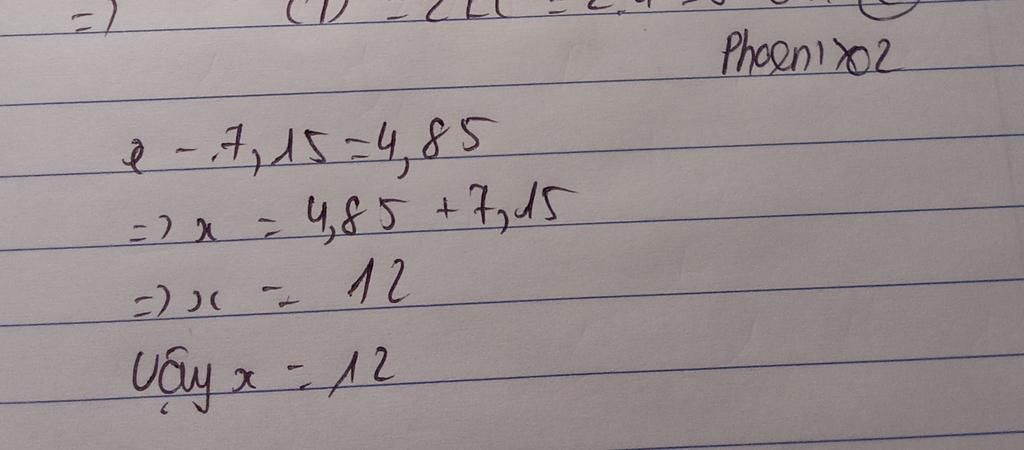 =>
Phoenix02
x - 7,15 = 4,85
=> x = 4,85 + 7,15
=> x = 12
Vậy x = 12